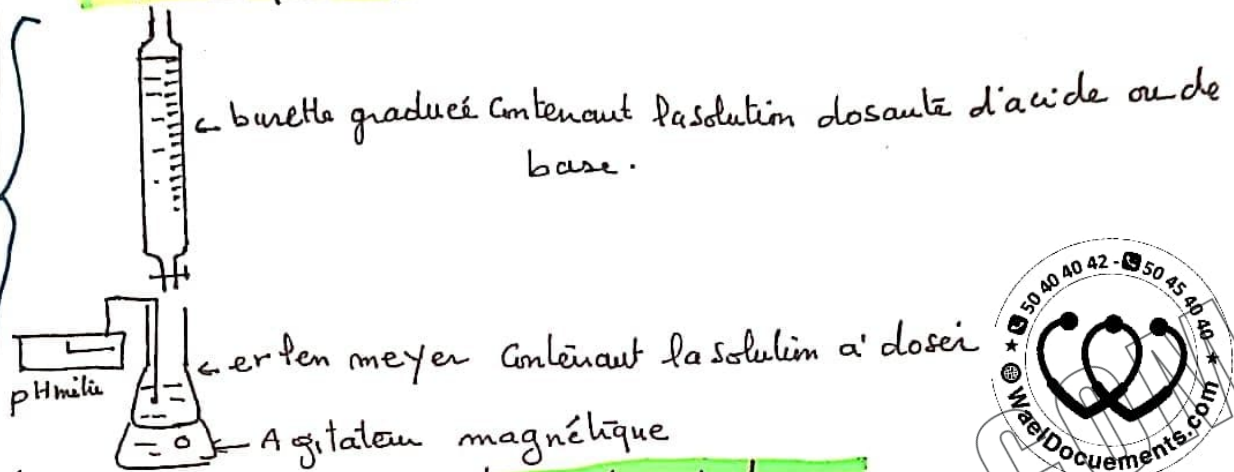 ← burette graduée Contenant la solution dosante d'acide ou de
base.
pHmètre
← erlen meyer Contenant la solution à doser
← Agitateur magnétique
50 40 40 42 - 50 45 40 40
WaelDocuements.com